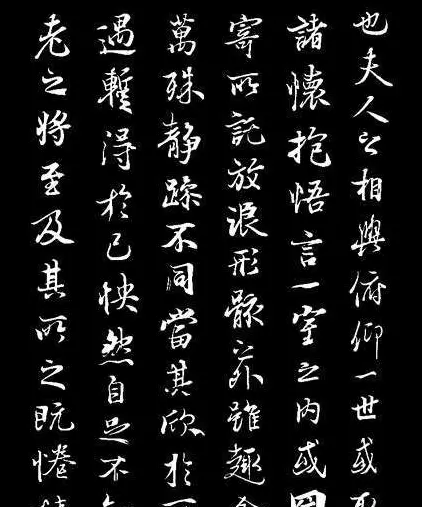 也夫人之相與俯仰一世或
諸懷抱悟言一室之內或因
寄所託放浪形骸之外雖趣
萬殊靜躁不同當其欣於
遇暫得於己怏然自足不
老之將至及其所之既惓